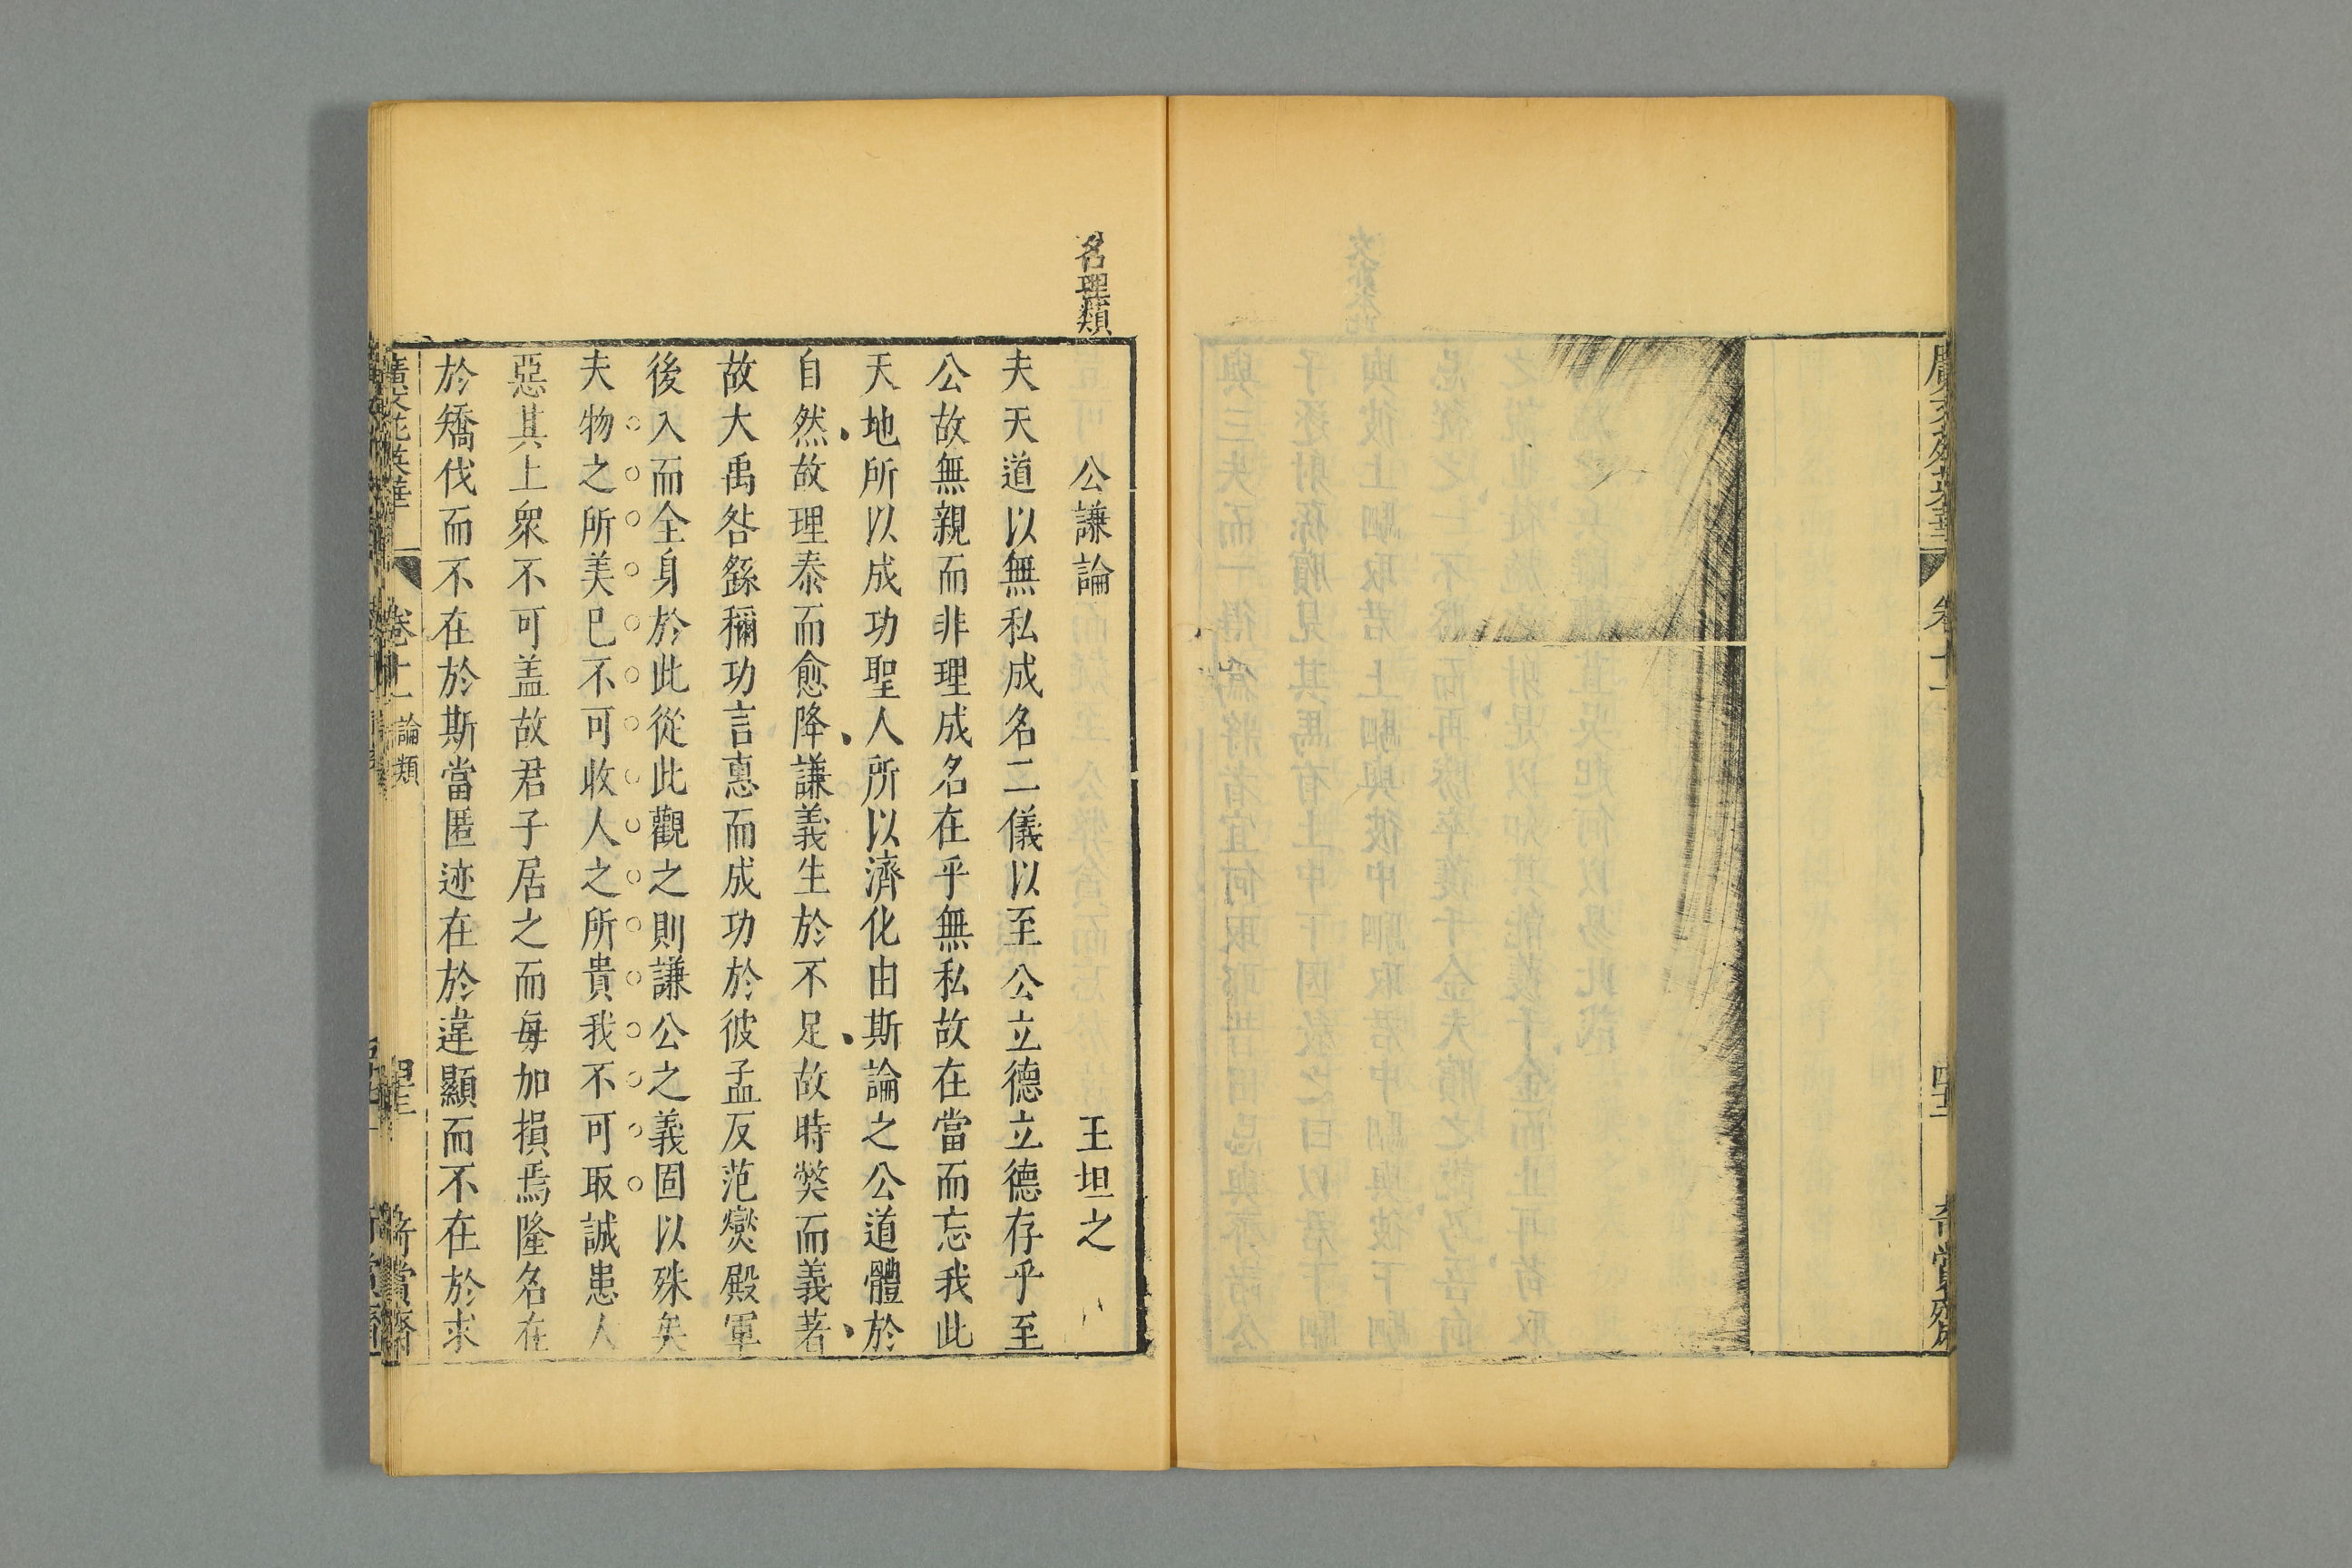 廣文苑英華
卷十一
奇賞齋
名理類
公謙論 王坦之
夫天道以無私成名二儀以至公立德立德存乎至
公故無親而非理成名在乎無私故在當而忘我此
天地所以成功聖人所以濟化由斯論之公道體於
自然故理泰而愈降謙義生於不足故時弊而義著
故大禹咎繇稱功言惠而成功於彼孟反范燮殿軍
後入而全身於此從此觀之則謙公之義固以殊矣
夫物之所美已不可收人之所貴我不可取誠患人
惡其上衆不可盖故君子居之而每加損焉隆名在
於矯伐而不在於斯當匿迹在於違顯而不在於求
廣文苑英華
卷十一 論類
奇賞齋